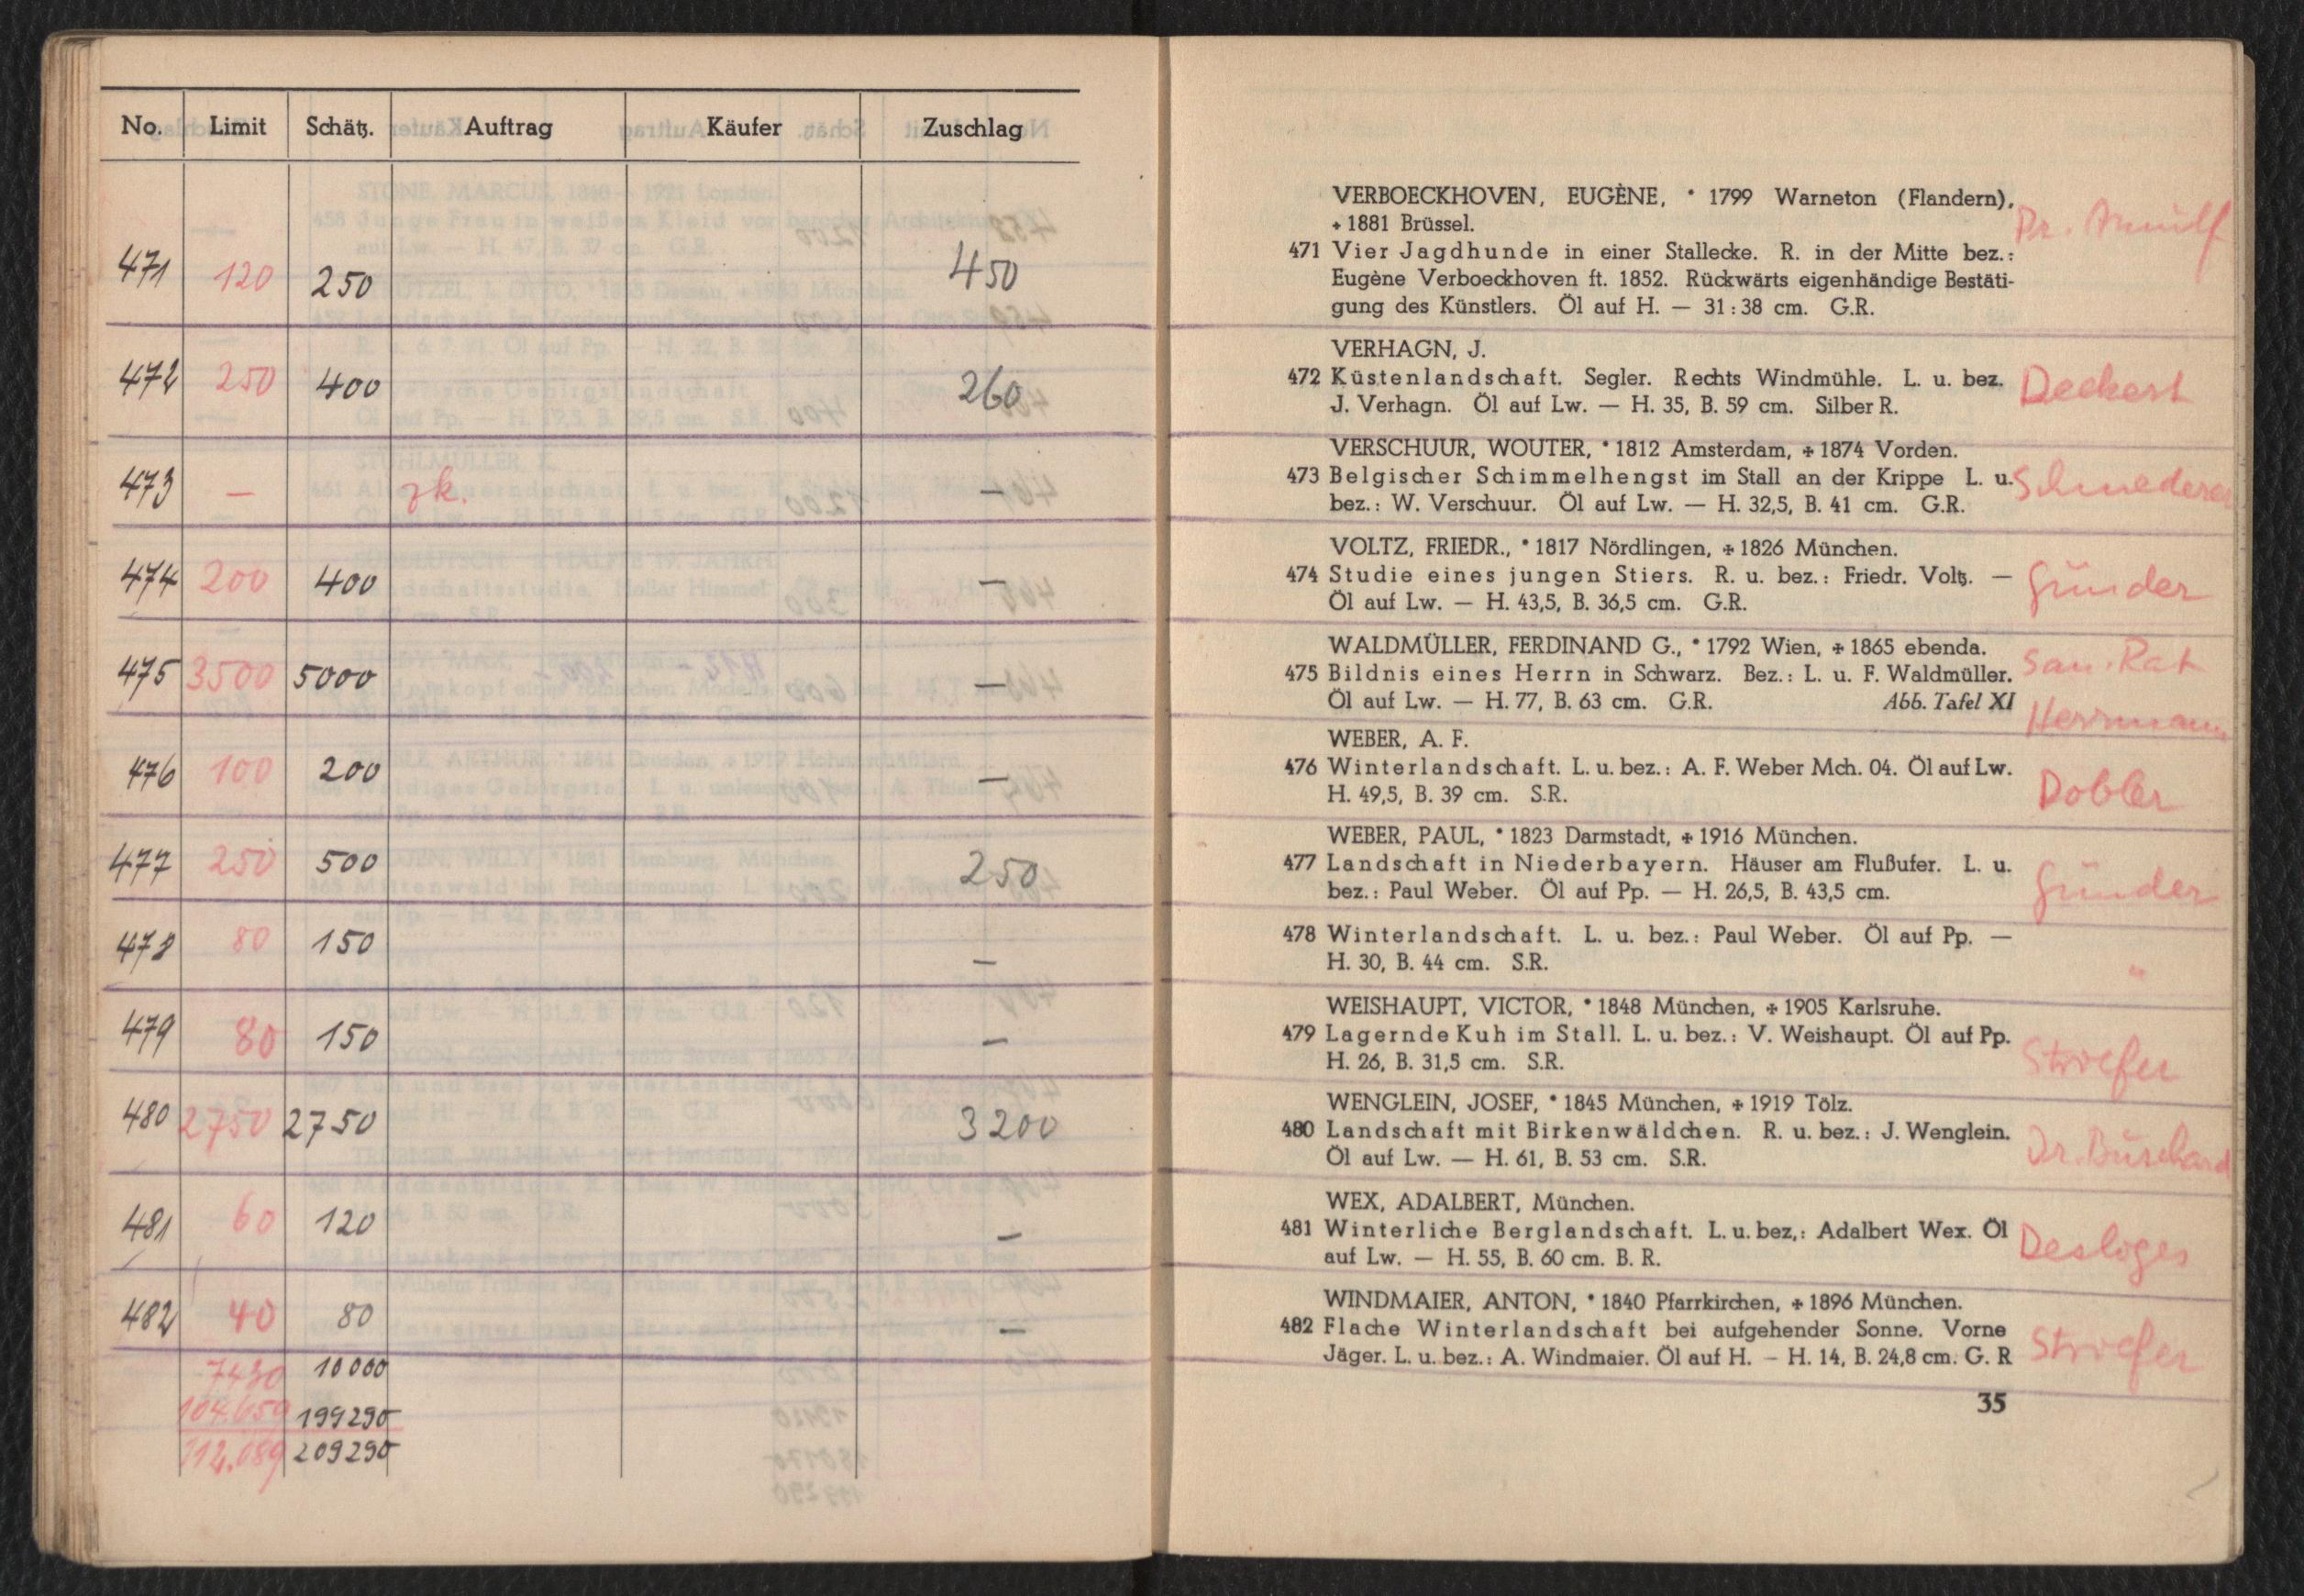 No. Limit Schätz. Auftrag Käufer Zuschlag
471 120 250 450
472 250 400 260
473 — zk. —
474 200 400 —
475 3500 5000 —
476 100 200 —
477 250 500 250
478 80 150 —
479 80 150 —
480 2750 2750 3200
481 60 120 —
482 40 80 —
7430 10000
104.659 199290
112.089 209290
VERBOECKHOVEN, EUGÈNE, * 1799 Warneton (Flandern),
+ 1881 Brüssel.
471 Vier Jagdhunde in einer Stallecke. R. in der Mitte bez.:
Eugène Verboeckhoven ft. 1852. Rückwärts eigenhändige Bestäti-
gung des Künstlers. Öl auf H. — 31 : 38 cm. G.R.
Dr. Arnulf
VERHAGN, J.
472 Küstenlandschaft. Segler. Rechts Windmühle. L. u. bez.
J. Verhagn. Öl auf Lw. — H. 35, B. 59 cm. Silber R.
Deckert
VERSCHUUR, WOUTER, * 1812 Amsterdam, + 1874 Vorden.
473 Belgischer Schimmelhengst im Stall an der Krippe L. u.
bez.: W. Verschuur. Öl auf Lw. — H. 32,5, B. 41 cm. G.R.
Schmederer
VOLTZ, FRIEDR., * 1817 Nördlingen, + 1826 München.
474 Studie eines jungen Stiers. R. u. bez.: Friedr. Voltz. —
Öl auf Lw. — H. 43,5, B. 36,5 cm. G.R.
Gründer
WALDMÜLLER, FERDINAND G., * 1792 Wien, + 1865 ebenda.
475 Bildnis eines Herrn in Schwarz. Bez.: L. u. F. Waldmüller.
Öl auf Lw. — H. 77, B. 63 cm. G.R. Abb. Tafel XI
San. Rat
Herrmann
WEBER, A. F.
476 Winterlandschaft. L. u. bez.: A. F. Weber Mch. 04. Öl auf Lw.
H. 49,5, B. 39 cm. S.R.
Dobler
WEBER, PAUL, * 1823 Darmstadt, + 1916 München.
477 Landschaft in Niederbayern. Häuser am Flußufer. L. u.
bez.: Paul Weber. Öl auf Pp. — H. 26,5, B. 43,5 cm.
Gründer
478 Winterlandschaft. L. u. bez.: Paul Weber. Öl auf Pp. —
H. 30, B. 44 cm. S.R.
"
WEISHAUPT, VICTOR, * 1848 München, + 1905 Karlsruhe.
479 Lagernde Kuh im Stall. L. u. bez.: V. Weishaupt. Öl auf Pp.
H. 26, B. 31,5 cm. S.R.
Stroefer
WENGLEIN, JOSEF, * 1845 München, + 1919 Tölz.
480 Landschaft mit Birkenwäldchen. R. u. bez.: J. Wenglein.
Öl auf Lw. — H. 61, B. 53 cm. S.R.
Dr. Burchard
WEX, ADALBERT, München.
481 Winterliche Berglandschaft. L. u. bez,: Adalbert Wex. Öl
auf Lw. — H. 55, B. 60 cm. B. R.
Desloges
WINDMAIER, ANTON, * 1840 Pfarrkirchen, + 1896 München.
482 Flache Winterlandschaft bei aufgehender Sonne. Vorne
Jäger. L. u. bez.: A. Windmaier. Öl auf H. – H. 14, B. 24,8 cm. G. R
Stroefer
35